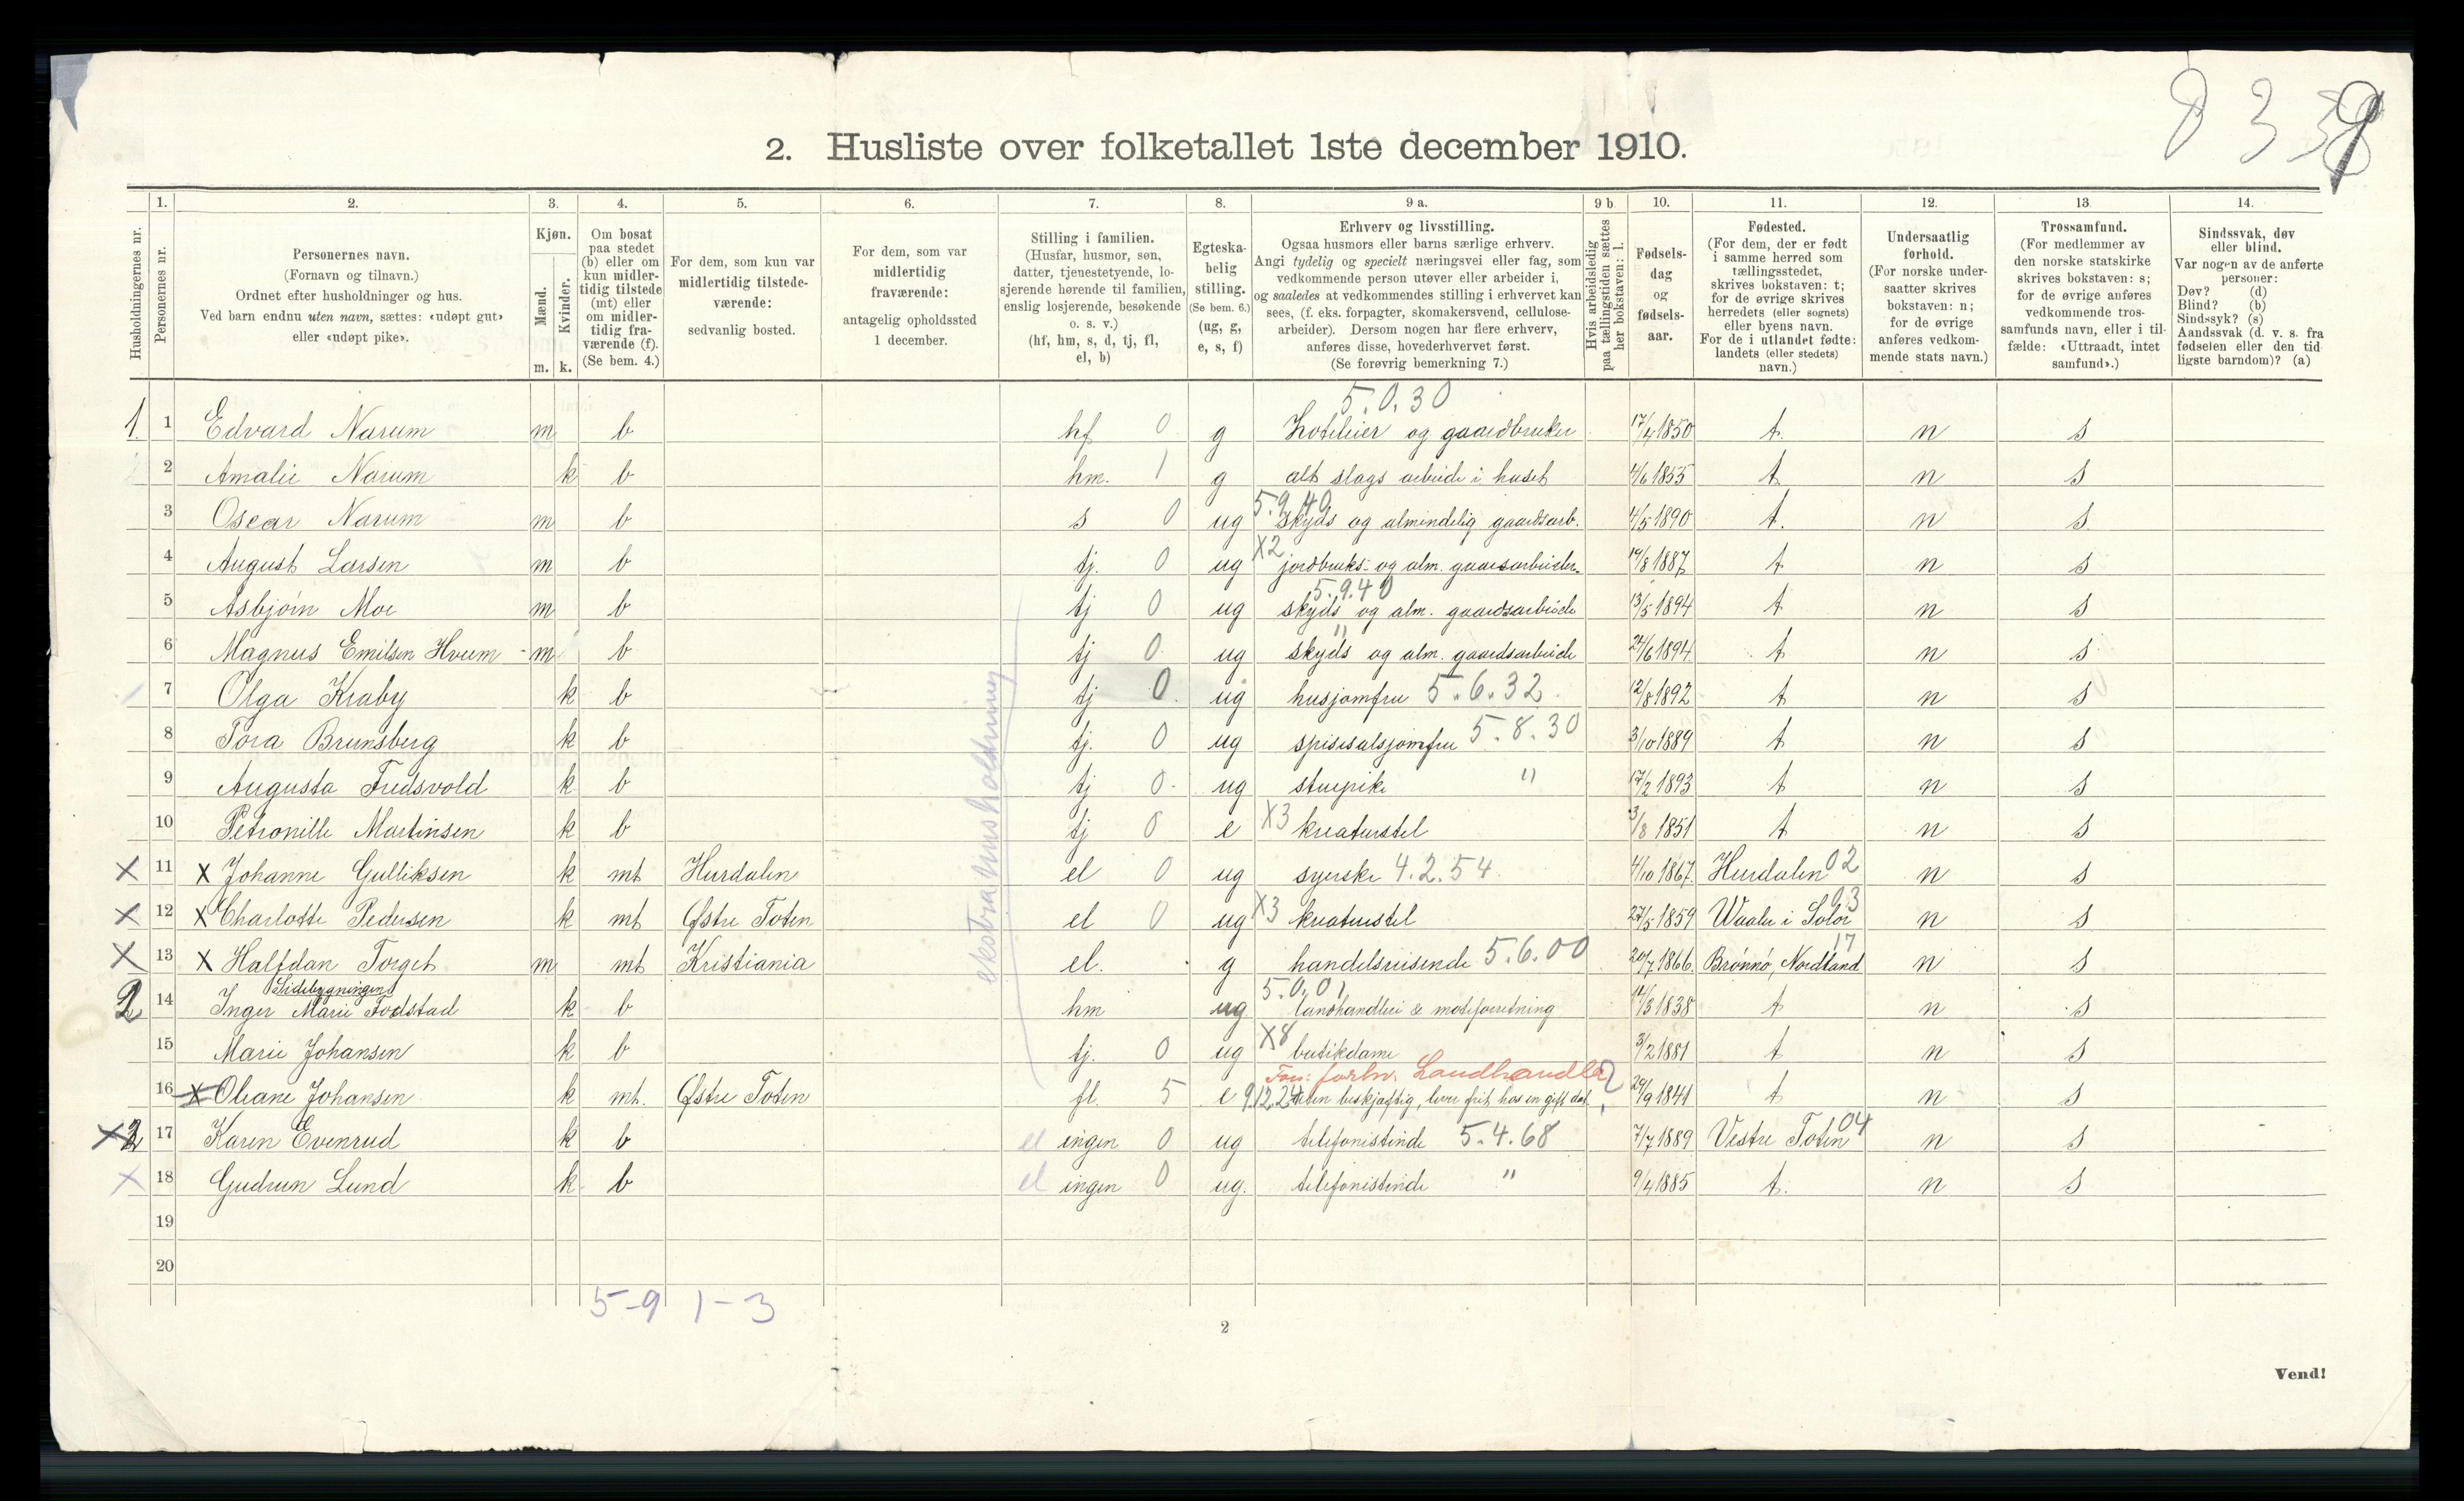 8 3 38
2. Husliste over folketallet 1ste december 1910.
Husholdningernes nr.
1. Personernes nr.
2. Personernes navn.
(Fornavn og tilnavn.)
Ordnet efter husholdninger og hus.
Ved barn endnu uten navn, sættes: «udøpt gut»
eller «udøpt pike».
3. Kjøn.
Mænd. Kvinder.
m. k.
4. Om bosat
paa stedet
(b) eller om
kun midler-
tidig tilstede
(mt) eller
om midler-
tidig fra-
værende (f).
(Se bem. 4.)
5. For dem, som kun var
midlertidig tilstede-
værende:
sedvanlig bosted.
6. For dem, som var
midlertidig
fraværende:
antagelig opholdssted
1 december.
7. Stilling i familien.
(Husfar, husmor, søn,
datter, tjenestetyende, lo-
sjerende hørende til familien,
enslig losjerende, besøkende
o. s. v.)
(hf, hm, s, d, tj, fl,
el, b)
8. Egteska-
belig
stilling.
(Se bem. 6.)
(ug, g,
e, s, f)
9 a. Erhverv og livsstilling.
Ogsaa husmors eller barns særlige erhverv.
Angi tydelig og specielt næringsvei eller fag, som
vedkommende person utøver eller arbeider i,
og saaledes at vedkommendes stilling i erhvervet kan
sees, (f. eks. forpagter, skomakersvend, cellulose-
arbeider). Dersom nogen har flere erhverv,
anføres disse, hovederhvervet først.
(Se forøvrig bemerkning 7.)
9 b Hvis arbeidsledig
paa tællingstiden sættes
her bokstaven: l.
10. Fødsels-
dag
og
fødsels-
aar.
11. Fødested.
(For dem, der er født
i samme herred som
tællingsstedet,
skrives bokstaven: t;
for de øvrige skrives
herredets (eller sognets)
eller byens navn.
For de i utlandet fødte:
landets (eller stedets)
navn.)
12. Undersaatlig
forhold.
(For norske under-
saatter skrives
bokstaven: n;
for de øvrige
anføres vedkom-
mende stats navn.)
13. Trossamfund.
(For medlemmer av
den norske statskirke
skrives bokstaven: s;
for de øvrige anføres
vedkommende tros-
samfunds navn, eller i til-
fælde: «Uttraadt, intet
samfund».)
14. Sindssvak, døv
eller blind.
Var nogen av de anførte
personer:
Døv? (d)
Blind? (b)
Sindssyk? (s)
Aandssvak (d. v. s. fra
fødselen eller den tid-
ligste barndom)? (a)
5.0.30
1. 1 Edvard Narum m b hf 0 g Hoteleier og gaardbruker 17/4 1850 t. n s
2 Amalie Narum k b hm. 1 g alt slags arbeide i huset 4/6 1855 t n s
5.9.40
3 Oscar Narum m b s 0 ug Skyds og almindelig gaardsarb. 4/5 1890 t. n s
4 August Larsen m b tj. 0 ug X2 jordbruks- og alm. gaardsarbeider. 19/8 1887 t n s
5.9.40
5 Asbjørn Moe m b tj 0 ug skyds og alm. gaardsarbeide 13/5 1894 t n s
"
6 Magnus Emilsen Hvem m b tj 0 ug skyds og alm. gaardsarbeide 24/6 1894 t n s
7 Olga Kraby k b tj 0 ug husjomfru 5.6.32 12/8 1892 t n s
8 Tora Brunsberg k b tj. 0 ug spisesalsjomfru 5.8.30 3/10 1889 t n s
9 Augusta Fredsvold k b tj 0 ug stuepike " 17/2 1893 t n s
10 Petronille Martinsen k b tj 0 e X3 kreaturstel 3/8 1851 t n s
X 11 X Johanne Gulliksen k mt Hurdalen el 0 ug syerske 4.2.54 4/10 1867. Hurdalen 02 n s
X 12 X Charlotte Pedersen k mt Østre Toten el 0 ug X3 kreaturstel 27/5 1859 Waaler i Solør 03 n s
X 13 X Halfdan Torget m mt Kristiania el. g handelsreisende 5.6.00 20/7 1866. Brønnø, Nordland 17 n s
Sidebygningen
5.0.01
2 14 Inger Marie Fodstad k b hm ug landhandleri & moteforretning 14/3 1838 t n s
15 Marie Johansen k b tj. 0 ug X8 butikdame 3/2 1881 t n s
Fors: forhv. Landhandler ?
16 X Oleane Johansen k mt. Østre Toten fl. 5 e 9.12.24 uten beskjæftig, lever frit hos en gift dat. 29/9 1841 t n s
X 3 17 Karen Evenrud k b el ingen 0 ug telefonistinde 5.4.68 7/7 1889 Vestre Toten 04 n s
X 18 Gudrun Lund k b el ingen 0 ug. telefonistinde " 9/4 1885 t. n s
19
20
ekstra husholdning
5-9 1-3
2
Vend!